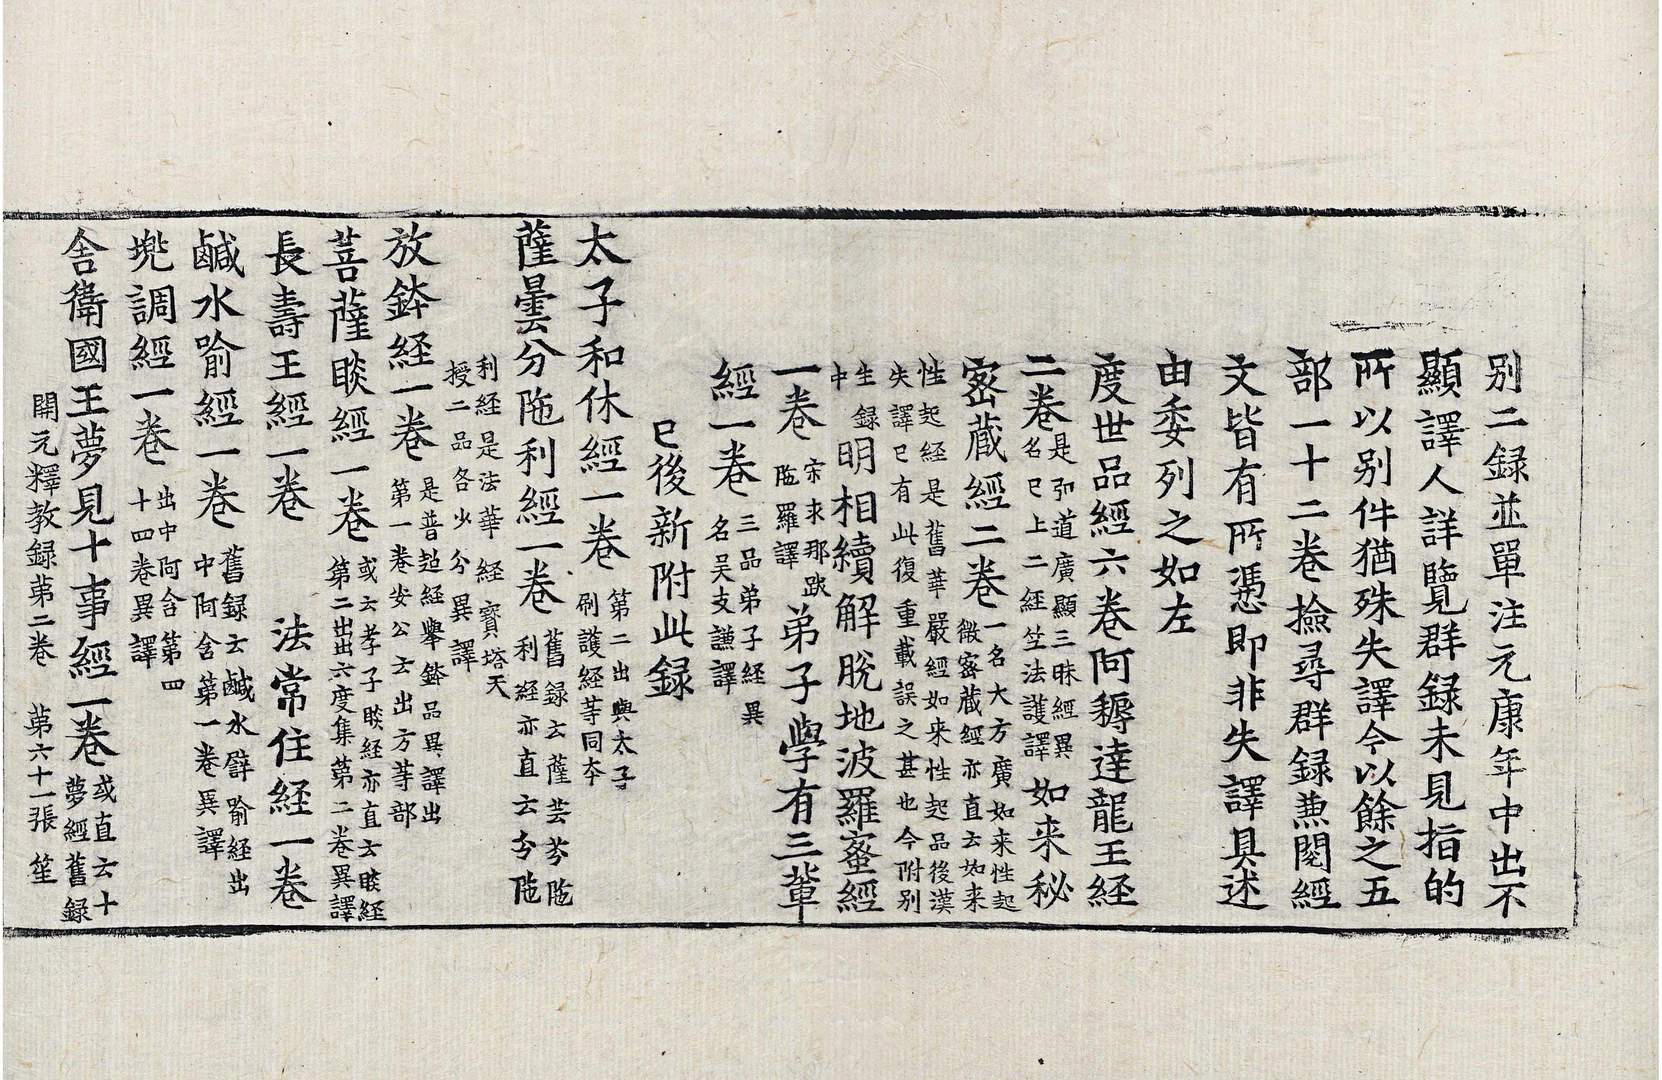 别二録並單注元康年中出不
顯譯人詳覽群録未見指的
所以别件猶殊失譯令以餘之五
部一十二卷撿尋群録兼閱經
文皆有所憑即非失譯具述
由委列之如左
度世品經六卷阿耨達龍王経
二卷是弥道廣顯三昧經異名已上二經竺法護譯如来秘
宻蔵經二卷一名大方廣如来性起微宻蔵經亦直云如来
性起経是舊華嚴經如来性起品後漢失譯已有此復重載誤之甚也今附别
生録中明相續解脫地波羅蜜經
一卷宋求那跋陁羅譯弟子學有三輩
經一卷三品弟子經異名吴支謙譯
已後新附此録
太子和休經一卷第二出與太子刷護経䓁同本
薩曇分陁利經一卷舊録云薩芸芬陁利経亦直云分陁
利経是法華経寶塔天授二品各少分異譯
放鉢経一卷是普超経舉鉢品異譯出第一卷安公云出方等部
菩薩睒經一卷或云孝子睒経亦直云睒経第二出出六度集第二卷異譯
長壽王經一卷 法常住経一卷
鹹水喻經一卷舊録云鹹水譬喻経出中阿含第一卷異譯
兠調經一卷出中阿含第四十四卷異譯
舍衛國王夢見十事經一卷或直云十夢經舊録
開元釋教録苐二卷 苐六十一張 笙